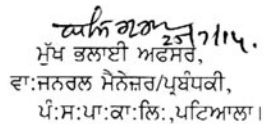 25/7/14.
ਮੁੱਖ ਭਲਾਈ ਅਫਸਰ,
ਵਾ:ਜਨਰਲ ਮੈਨੇਜਰ/ਪ੍ਰਬੰਧਕੀ,
ਪੰ:ਸ:ਪਾ:ਕਾ:ਲਿ:,ਪਟਿਆਲਾ।